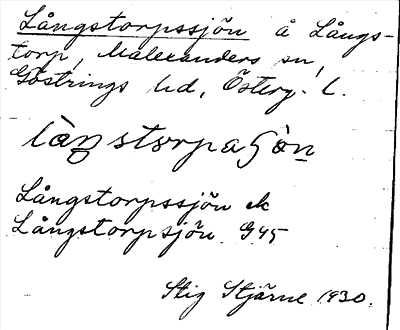 Långstorpssjön å Långs-
torp, Malexanders sn,
Göstrings hd, Österg. l.
làŋstorpaʃön
Långstorpssjön ek
Långstorpsjön G45
Stig Stjärne 1930.